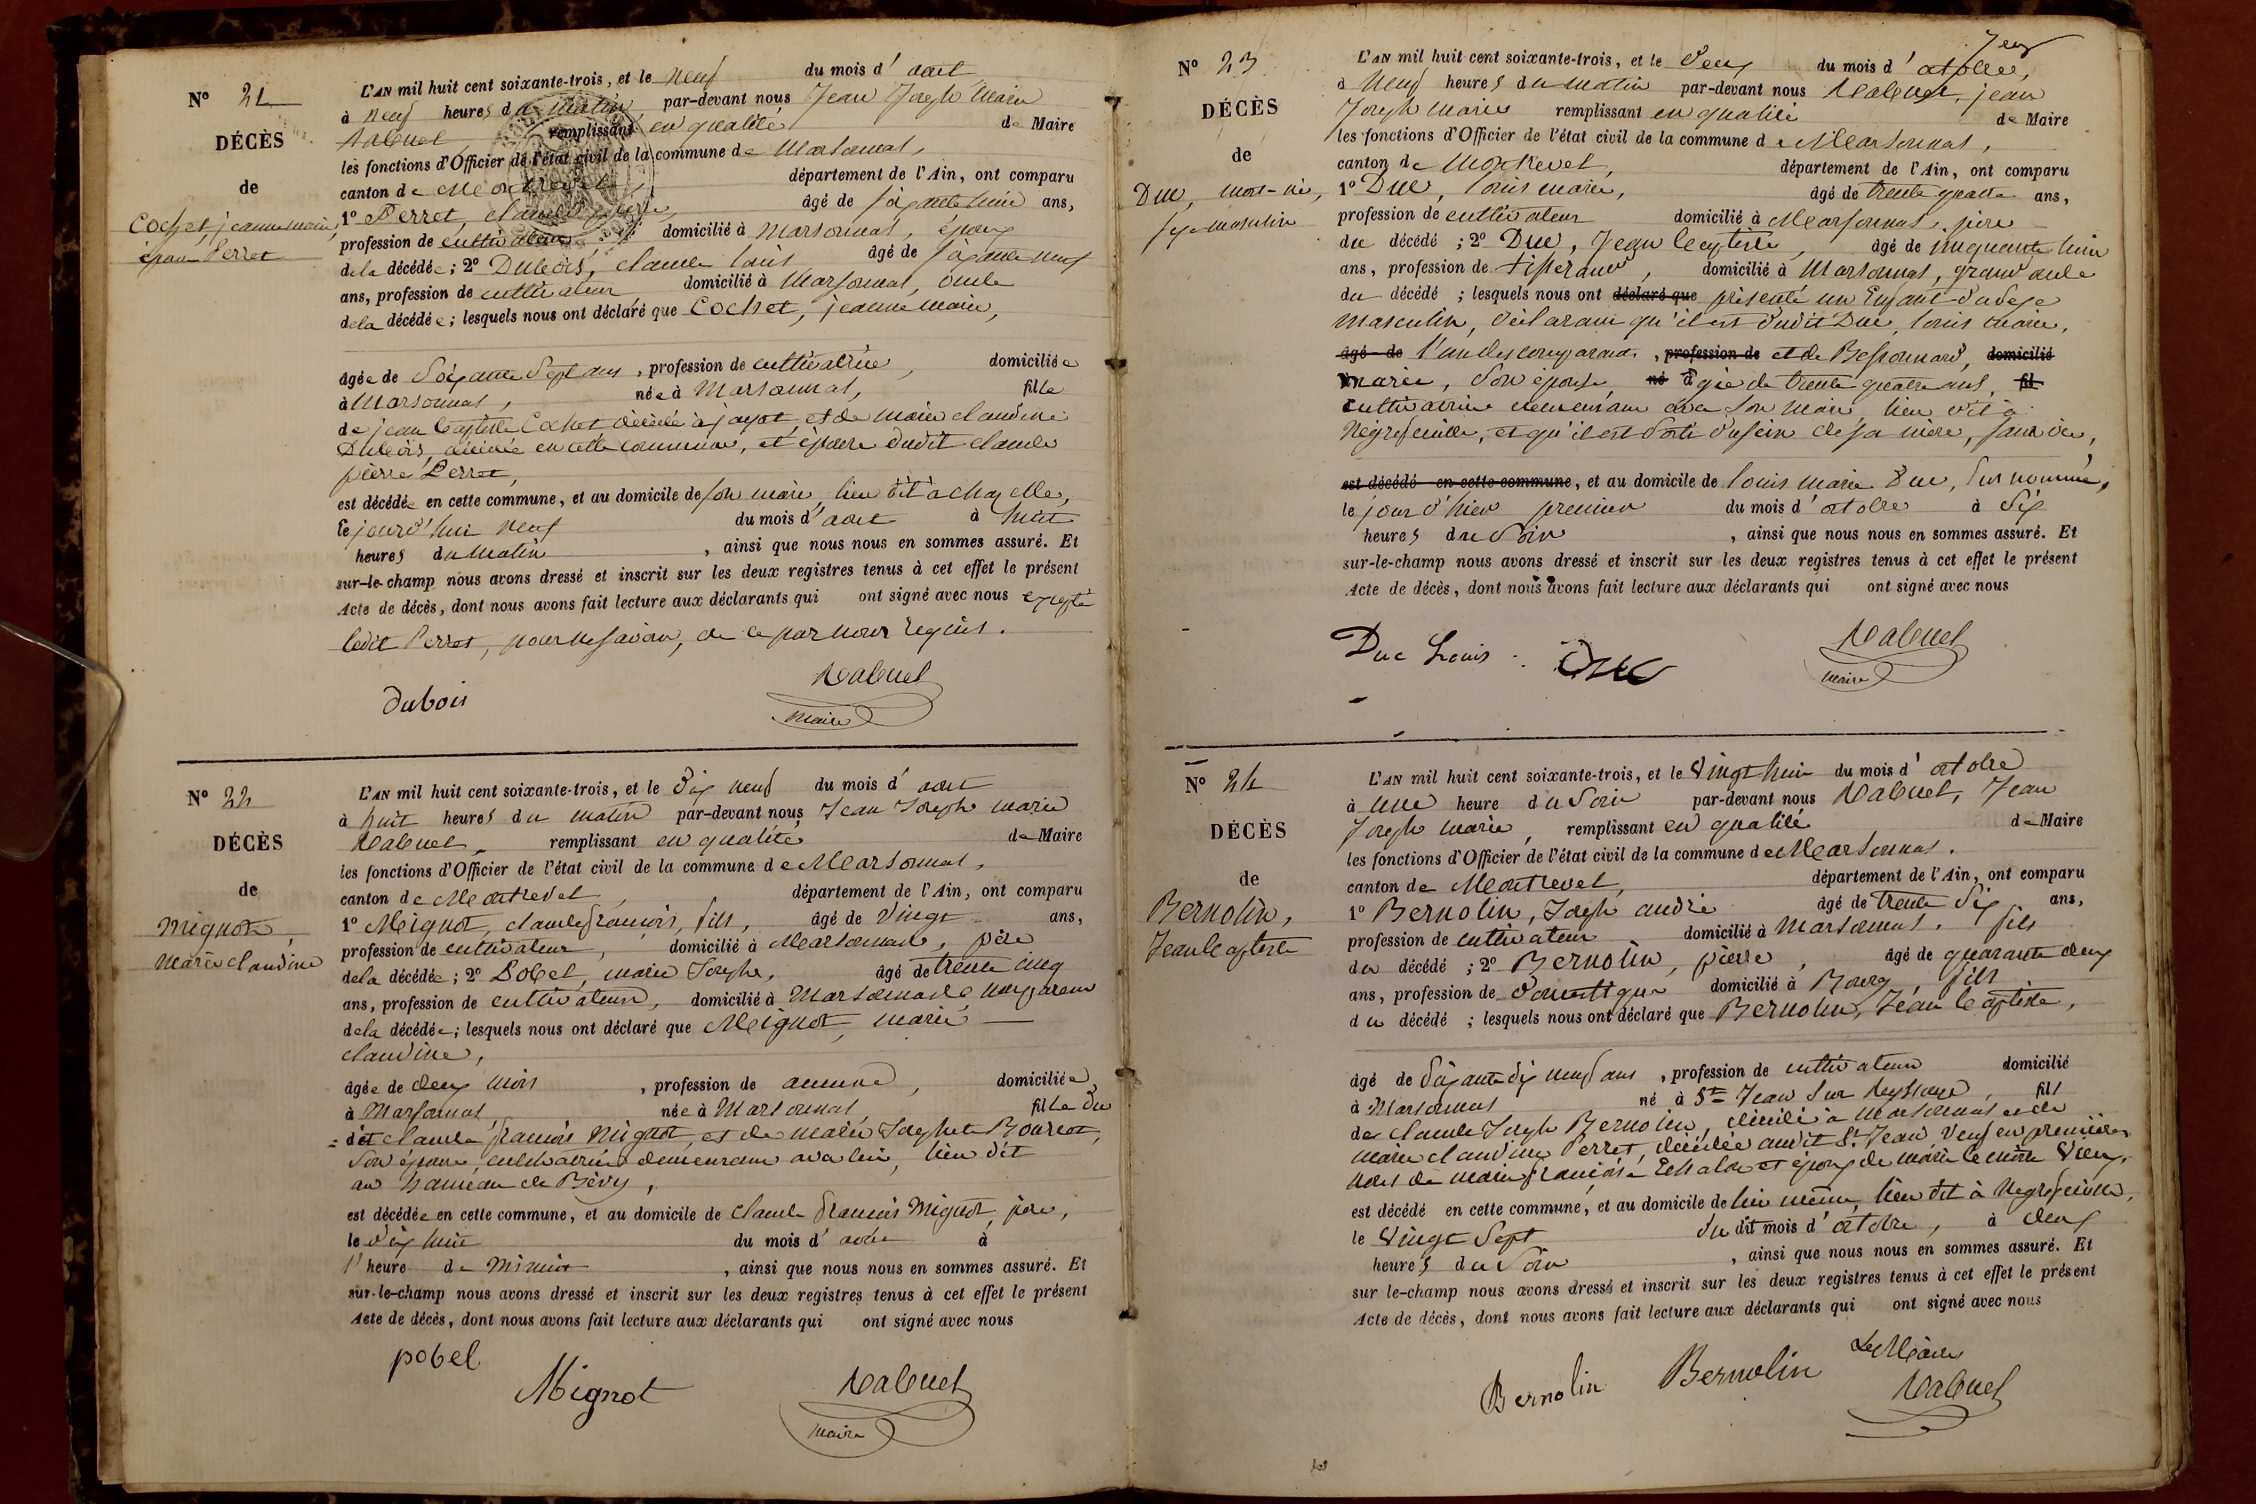 N° 21
DÉCÈS
de
Cochet, jeanne marie,
épouse Perret
L'AN mil huit cent soixante-trois, et le neuf du mois d'août
à neuf heures du matin par-devant nous Jean Joseph Marie
remplissant en qualité de Maire
les fonctions d'Officier de l'état civil de la commune de Marsonnas,
canton de Montrevel, département de l'Ain, ont comparu
1° Perret, claude pierre, âgé de soixante huit ans,
profession de cultivateur domicilié à Marsonnas, époux
de la décédée; 2° Dubois, claude louis âgé de soixante neuf
ans, profession de cultivateur domicilié à Marsonnas, oncle
de la décédée; lesquels nous ont déclaré que Cochet, jeanne marie,
âgée de soixante sept ans, profession de cultivatrice, domiciliée
à Marsonnas, née à Marsonnas, fille
de jean baptiste Cochet décédé à jayat, et de marie claudine
Dubois, décédée en cette commune, et épouse dudit claude
pierre Perret,
est décédée en cette commune, et au domicile de son mari, lieu dit à chazelle,
le jourd'hui neuf du mois d'août à huit
heures du matin, ainsi que nous nous en sommes assuré. Et
sur-le-champ nous avons dressé et inscrit sur les deux registres tenus à cet effet le présent
Acte de décès, dont nous avons fait lecture aux déclarants qui ont signé avec nous excepté
ledit Perret, pour ne savoir, de ce par nous requis.
Dubois
maire
N° 22
DÉCÈS
de
Mignot,
Marie claudine
L'AN mil huit cent soixante-trois, et le dix neuf du mois d'août
à huit heures du matin par-devant nous Jean Joseph marie
remplissant en qualité de Maire
les fonctions d'Officier de l'état civil de la commune de Marsonnas,
canton de Montrevel, département de l'Ain, ont comparu
1° Mignot, claude françois, fils, âgé de vingt ans,
profession de cultivateur, domicilié à Marsonnas, père
de la décédée; 2° Pobel, marie Joseph, âgé de trente cinq
ans, profession de cultivateur, domicilié à Marsonnas non parent
de la décédée; lesquels nous ont déclaré que Mignot, marie
claudine,
âgée de deux mois, profession de aucune, domiciliée
à Marsonnas, née à Marsonnas, fille du
dit claude françois Mignot, et de marie Josephte
son épouse, cultivatrice demeurant avec lui, lieu dit
au hameau de
est décédée en cette commune, et au domicile de claude françois Mignot, père,
le dix huit du mois d'août à
l'heure de minuit, ainsi que nous nous en sommes assuré. Et
sur-le-champ nous avons dressé et inscrit sur les deux registres tenus à cet effet le présent
Acte de décès, dont nous avons fait lecture aux déclarants qui ont signé avec nous
pobel
Mignot
maire
N° 23
DÉCÈS
de
Duc, mort-né,
sexe masculin
L'AN mil huit cent soixante-trois, et le deux du mois d'octobre,
à neuf heures du matin par-devant nous jean
Joseph marie remplissant en qualité de Maire
les fonctions d'Officier de l'état civil de la commune de Marsonnas,
canton de Montrevel, département de l'Ain, ont comparu
1° Duc, louis marie, âgé de trente quatre ans,
profession de cultivateur domicilié à Marsonnas, père
du décédé; 2° Duc, Jean baptiste, âgé de cinquante huit
ans, profession de tisserand, domicilié à Marsonnas, grand oncle
du décédé; lesquels nous ont déclaré que présenté un Enfant du sexe
masculin, déclarant qu'il est dudit Duc, louis marie,
âgé de l'un des comparants, profession de et de domicilié
marie, son épouse, né âgée de trente quatre ans, fil
cultivatrice demeurant avec son mari, lieu dit à
Négrefeuille, et qu'il est sorti du sein de sa mère, sans vie,
est décédé en cette commune, et au domicile de louis marie Duc, sus nommé,
le jour d'hier premier du mois d'octobre à six
heures du soir, ainsi que nous nous en sommes assuré. Et
sur-le-champ nous avons dressé et inscrit sur les deux registres tenus à cet effet le présent
Acte de décès, dont nous avons fait lecture aux déclarants qui ont signé avec nous
Duc Louis
Duc
maire
N° 24
DÉCÈS
de
Bernolin,
Jean baptiste
L'AN mil huit cent soixante-trois, et le vingt huit du mois d'octobre
à une heure du soir par-devant nous Jean
Joseph marie, remplissant en qualité de Maire
les fonctions d'Officier de l'état civil de la commune de Marsonnas.
canton de Montrevel, département de l'Ain, ont comparu
1° Bernolin, Joseph andré âgé de trente six ans,
profession de cultivateur domicilié à Marsonnas, fils
du décédé; 2° Bernolin, pierre, âgé de quarante deux
ans, profession de domestique domicilié à Bourg, fils
du décédé; lesquels nous ont déclaré que Bernolin, Jean baptiste,
âgé de soixante dix neuf ans, profession de cultivateur domicilié
à Marsonnas né à St Jean sur Reyssouze, fils
de claude Joseph Bernolin, décédé à Marsonnas et de
marie claudine Perret, décédée audit St Jean, veuf en premières
noces de marie françoise et époux de marie
est décédé en cette commune, et au domicile de lui même, lieu dit à Negrefeuille,
le vingt sept du dit mois d'octobre, à deux
heures du soir, ainsi que nous nous en sommes assuré. Et
sur le-champ nous avons dressé et inscrit sur les deux registres tenus à cet effet le présent
Acte de décès, dont nous avons fait lecture aux déclarants qui ont signé avec nous
Bernolin
Bernolin
Le Maire